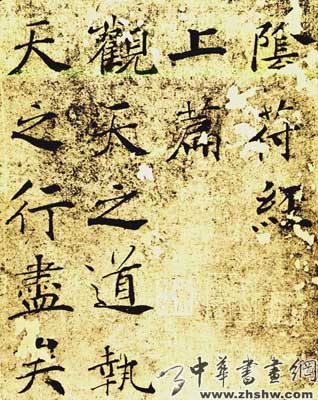 陰符經
上篇
觀天之道執
天之行盡矣
中華書畫網
www.zhshw.com